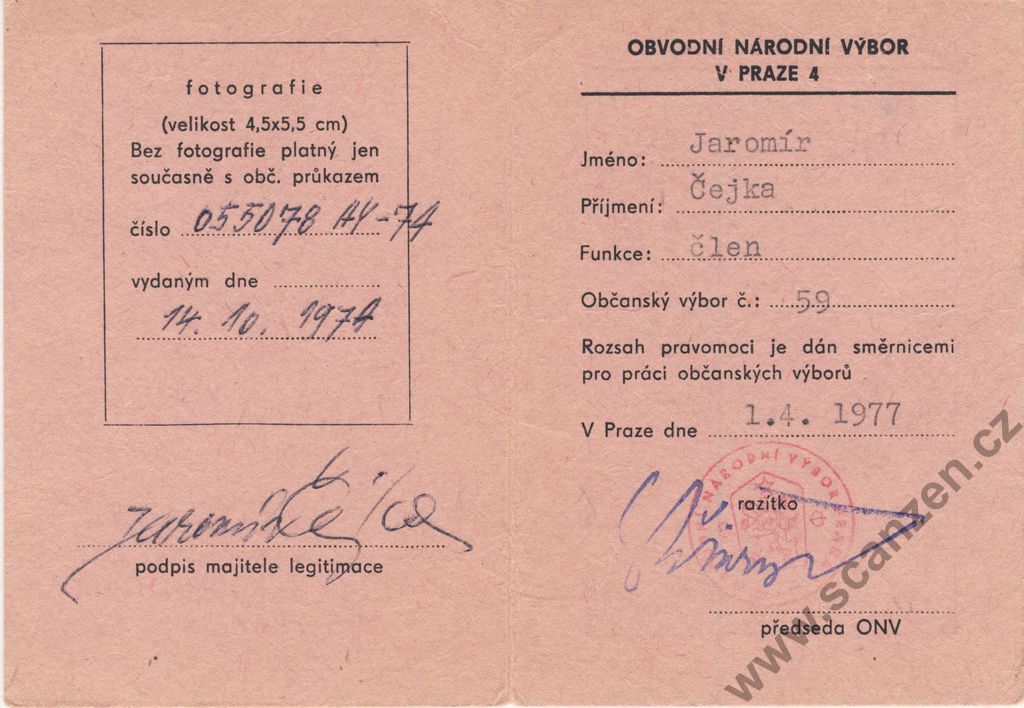 fotografie
(velikost 4,5x5,5 cm)
Bez fotografie platný jen
současně s obč. průkazem
číslo 055078 AY-74
vydaným dne
14. 10. 1974
Jaromír Čejka
podpis majitele legitimace
OBVODNÍ NÁRODNÍ VÝBOR
V PRAZE 4
Jméno: Jaromír
Příjmení: Čejka
Funkce: člen
Občanský výbor č.: 59
Rozsah pravomoci je dán směrnicemi
pro práci občanských výborů
V Praze dne 1.4. 1977
NÁRODNÍ VÝBOR
razítko
předseda ONV
www.scanzen.cz